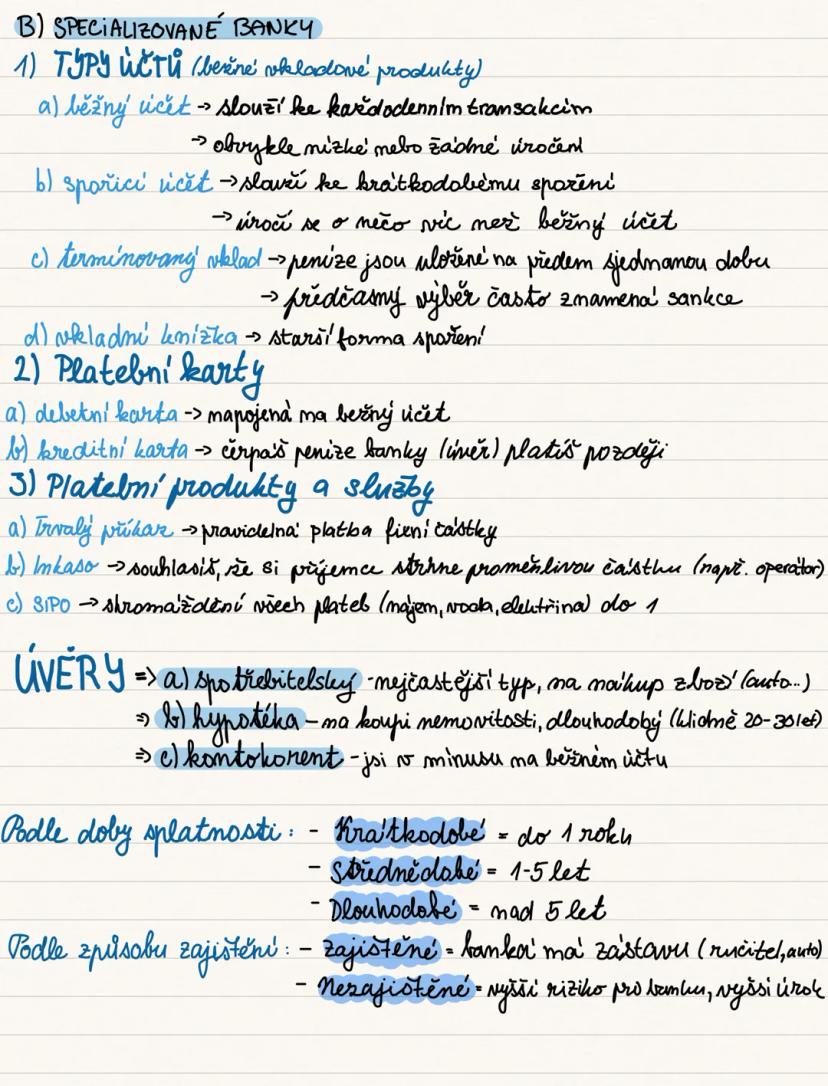 B) SPECIALIZOVANÉ BANKY
1) TYPY ÚČTŮ (běžné vkladové produkty)
a) běžný účet → slouží ke každodenním transakcím
→ obvykle nízké nebo žádné úročení
b) spořící účet → slouží ke krátkodobému spoření
→ úročí se o něco víc než běžný účet
c) termínovaný vklad → peníze jsou uložené na předem sjednanou dobu
→ předčasný výběr často znamená sankce
d) vkladní knížka → starší forma spoření
2) Platební karty
a) debetní karta -> napojená na běžný účet
b) kreditní karta → čerpáš peníze banky (úvěr) platíš později
3) Platební produkty a služby
a) Trvalý příkaz → pravidelná platba fixní částky
b) Inkaso → souhlasíš, že si příjemce strhne proměnlivou částku (např. operátor)
c) SIPO → shromáždění všech plateb (nájem, voda, elektřina) do 1
ÚVĚRY => a) spotřebitelský - nejčastější typ, na nákup zboží (auto...)
=> b) hypotéka – na koupi nemovitosti, dlouhodobý (klidně 20-30 let)
=> c) kontokorent - jsi v mínusu na běžném účtu
Podle doby splatnosti: - Krátkodobé = do 1 roku
- Střednědobé = 1-5 let
- Dlouhodobé = nad 5 let
Podle způsobu zajištění: - Zajištěné = banka má zástavu (ručitel, auto)
- Nezajištěné = vyšší riziko pro banku, vyšší úrok